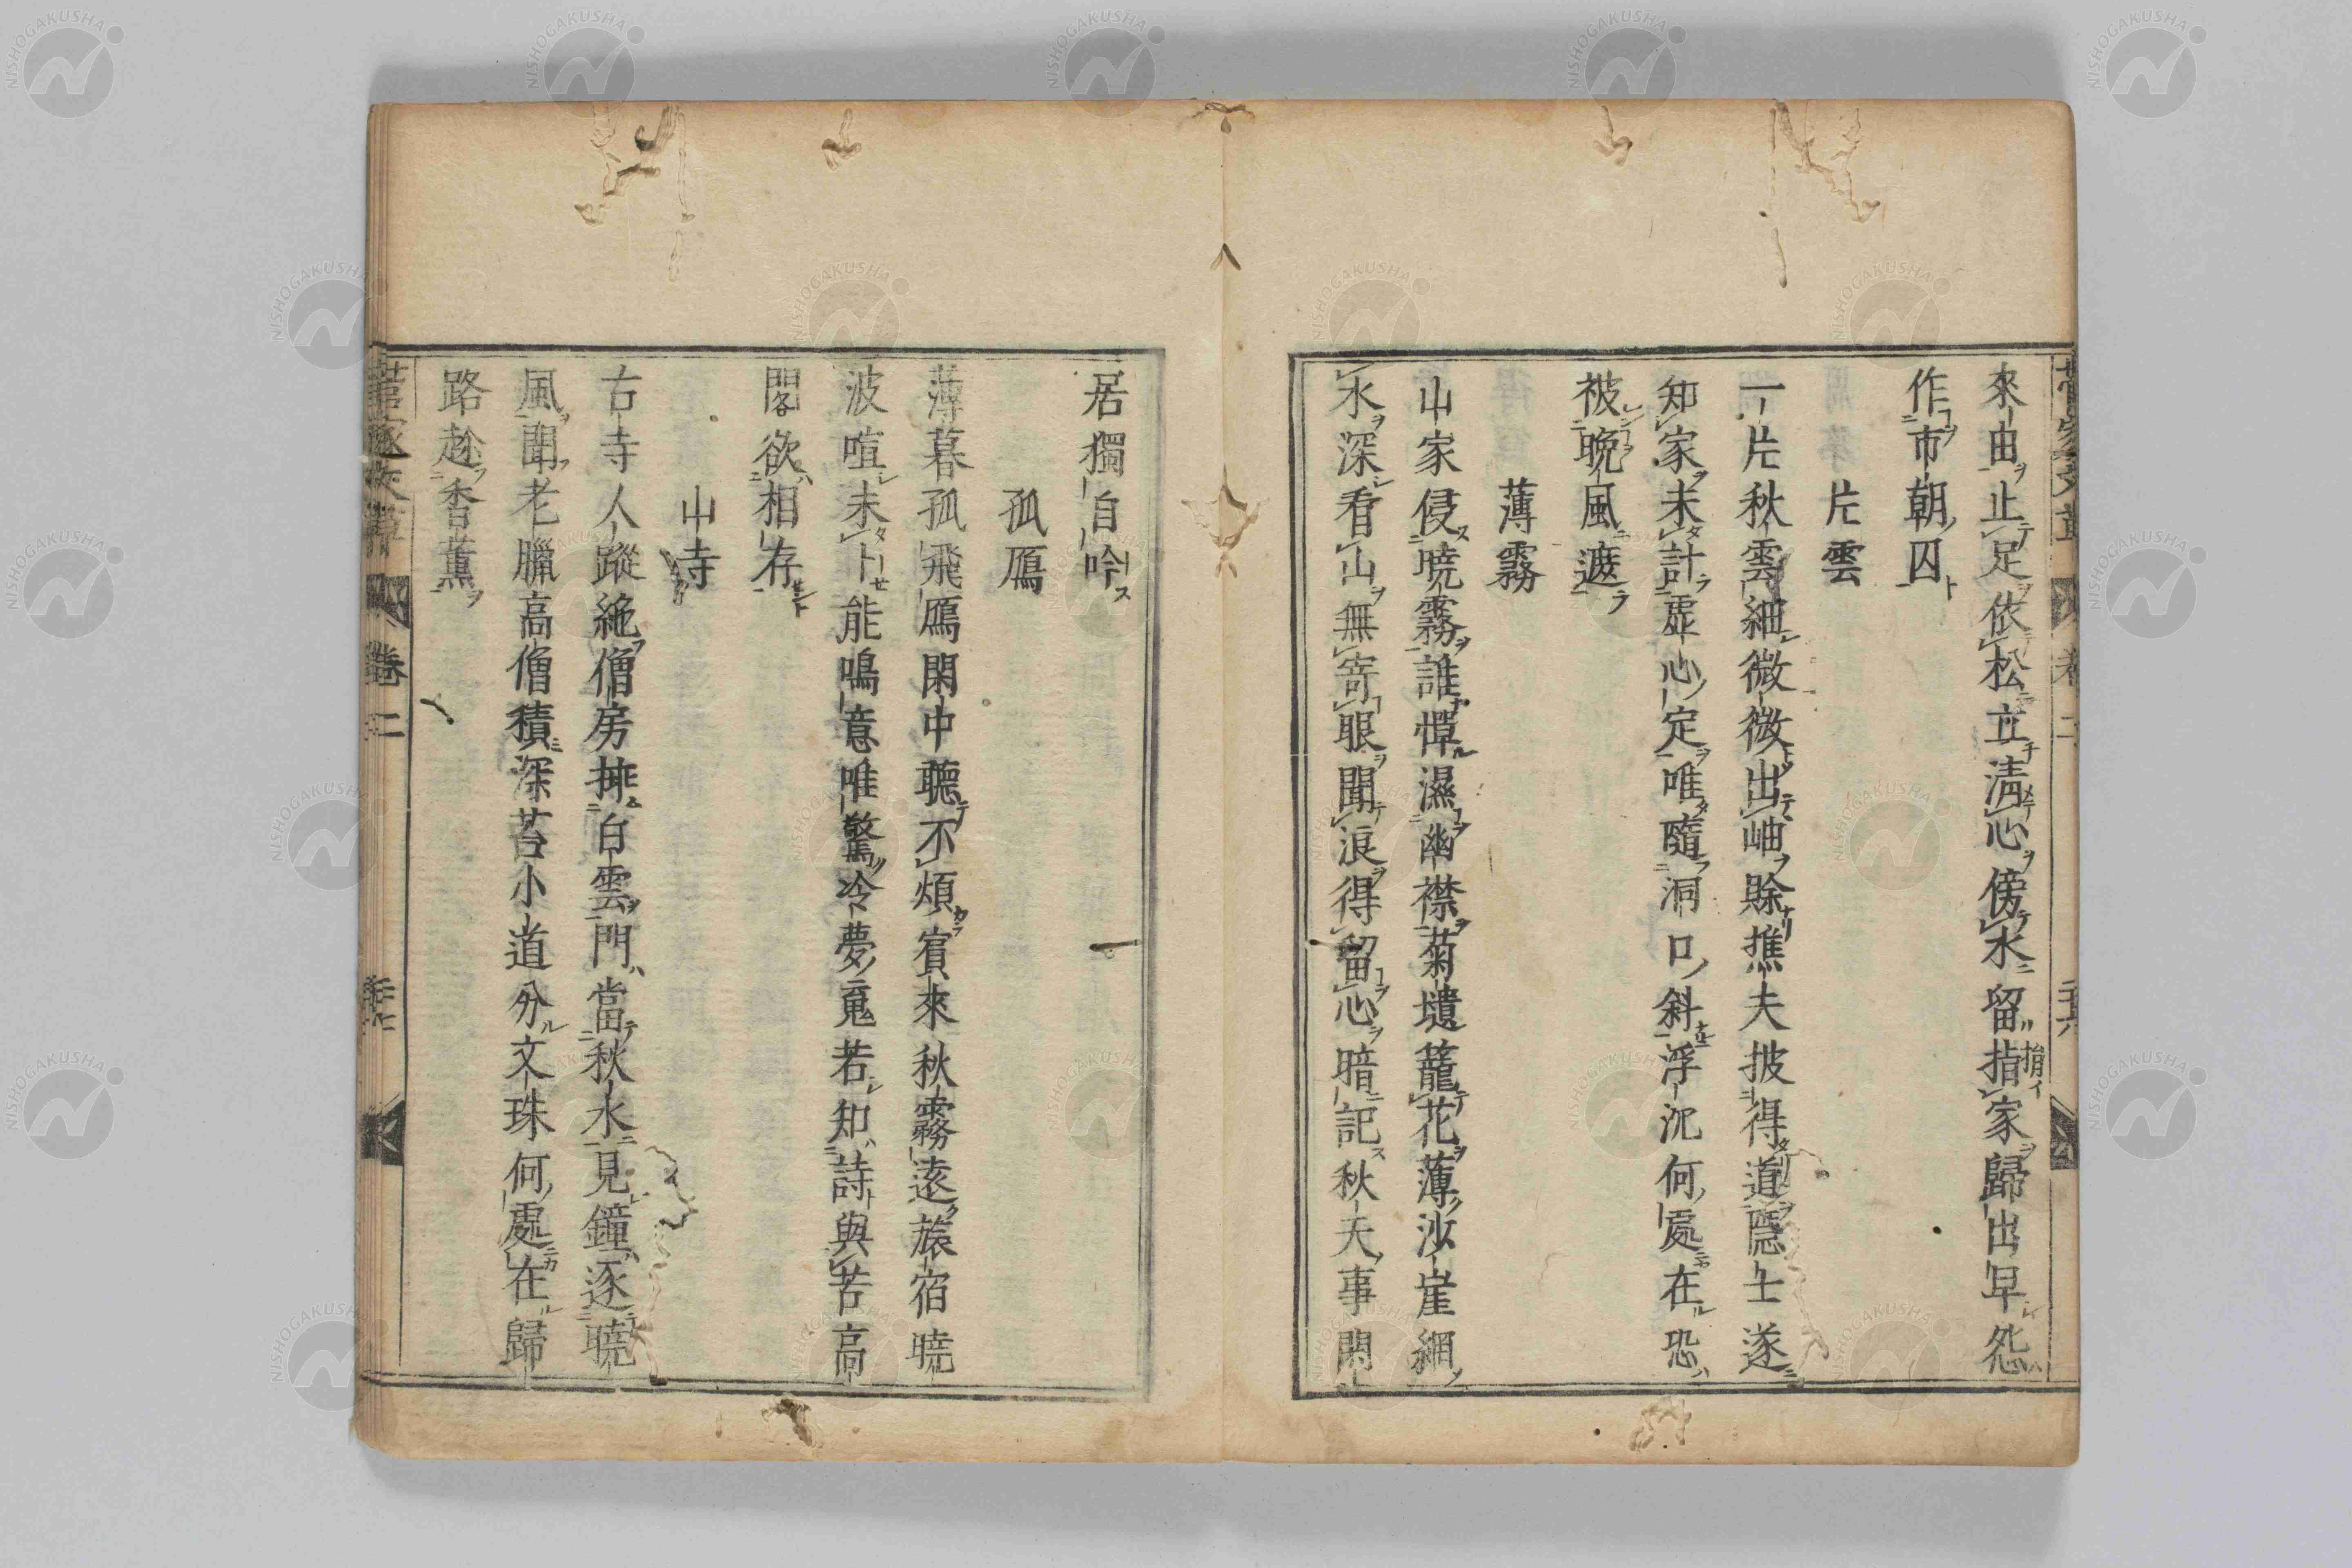 來由止足依松立淸心傍水留指家歸出早怨
作市朝囚
片雲
一片秋雲細微微出岫賒樵夫披得道隱士遂
知家未計虛心定唯隨洞口斜浮沉何處在恐
被晩風遮
薄霧
山家侵曉霧誰憚濕幽襟菊壝籠花薄沙崖網
水深看山無寄眼聞浪得留心暗記秋天事閑
居獨自吟
孤鴈
薄暮孤飛鴈閑中聽不煩賓來秋霧遠旅宿曉
波喧未卜能鳴意唯驚冷夢䰟若知詩與苦高
閣欲相存
山寺
古寺人蹤絶僧房挿白雲門當秋水見鐘逐曉
風聞老臘高僧積深苔小道分文珠何處在歸
路趁香薰
菅家文草 巻二